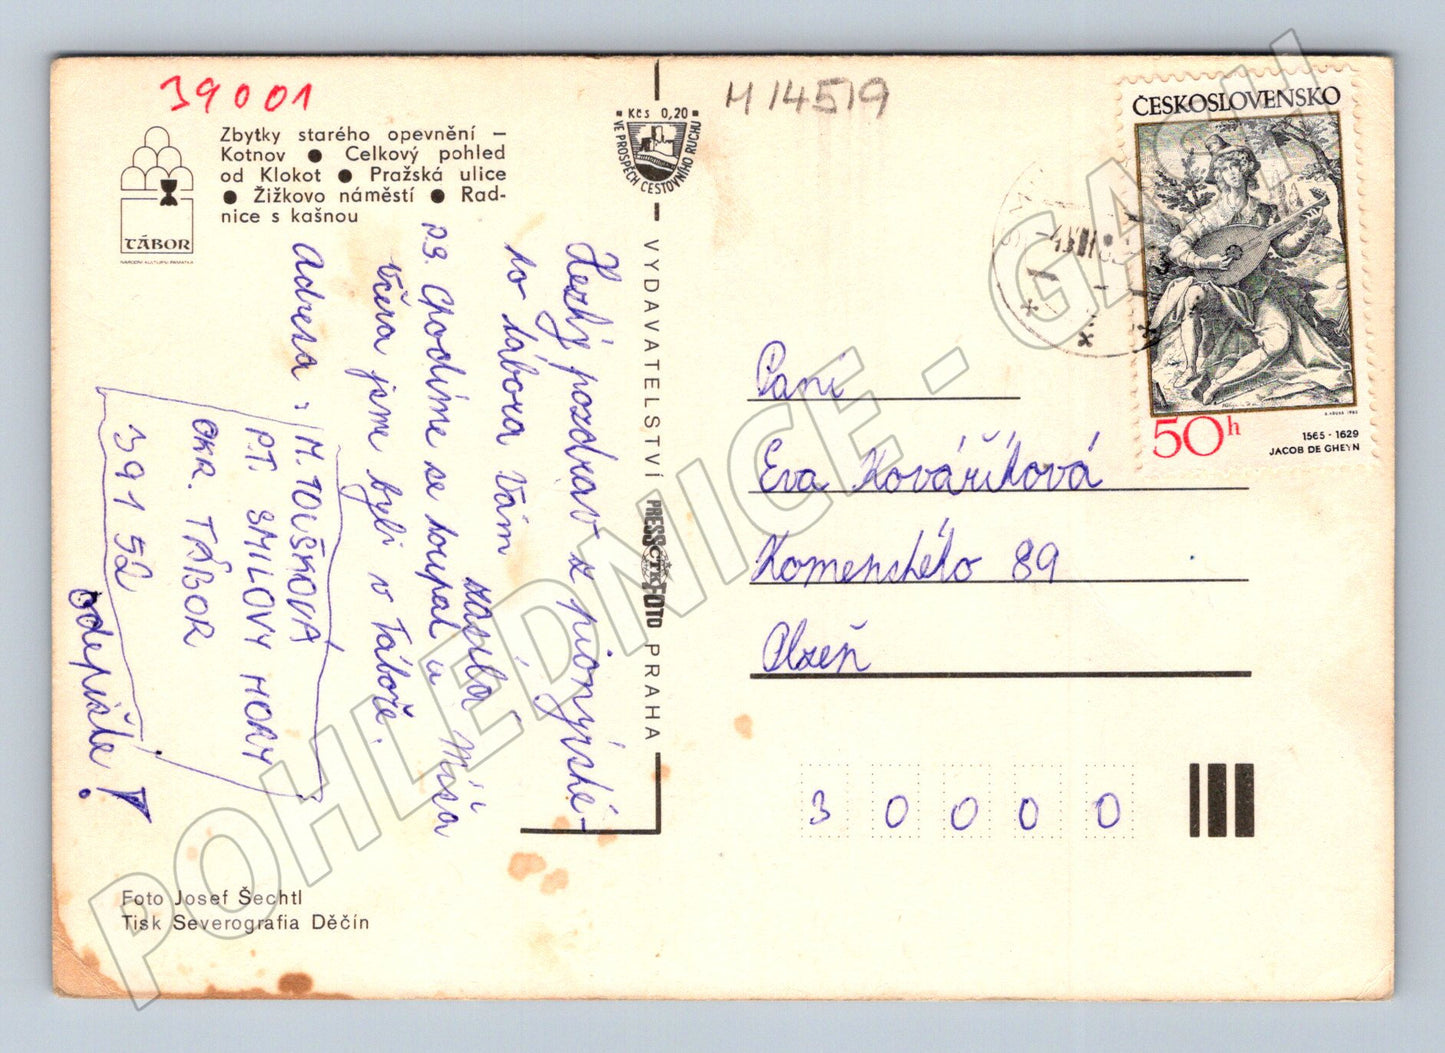 39001
M 14519
Zbytky starého opevnění –
Kotnov ● Celkový pohled
od Klokot ● Pražská ulice
● Žižkovo náměstí ● Rad-
nice s kašnou
TÁBOR
NÁRODNÍ KULTURNÍ PAMÁTKA
Kčs 0,20
VE PROSPĚCH CESTOVNÍHO RUCHU
VYDAVATELSTVÍ PRESSFOTO PRAHA
ČTK
Hezký pozdrav z pionýrské-
ho tábora Vám
zasílá Míša
P.S. Chodíme se koupat a
včera jsme byli v Táboře.
Adresa:
M. TOUŠKOVÁ
P.T. SMILOVY HORY
OKR. TÁBOR
391 52
odepište!
Foto Josef Šechtl
Tisk Severografia Děčín
ČESKOSLOVENSKO
50h
1565 - 1629
JACOB DE GHEYN
Paní
Eva Kováříková
Komenského 89
Plzeň
3 0 0 0 0
POHLEDNICE - GASH